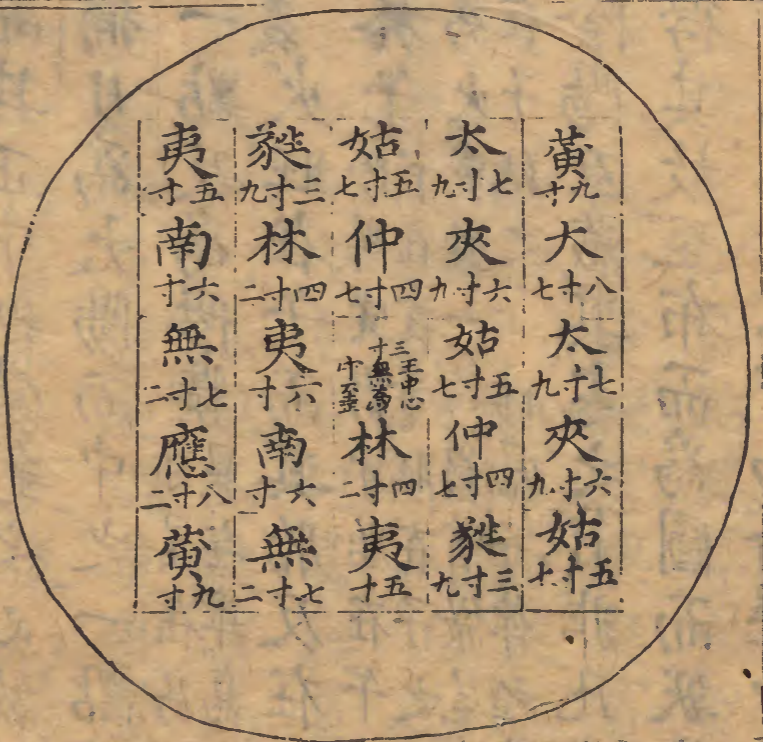 黃
九寸
大
八寸七
太
七寸九
夾
六寸九
姑
五寸七
太
七寸九
夾
六寸九
姑
五寸七
仲
四寸七
蕤
三寸九
姑
五寸七
仲
四寸七
三寸
王中心
無為
守至正
林
四寸二
夷
五十
蕤
三寸九
林
四寸二
夷
六寸
南
六寸
無
七寸二
夷
五寸
南
六寸
無
七寸二
應
八寸二
黃
九寸